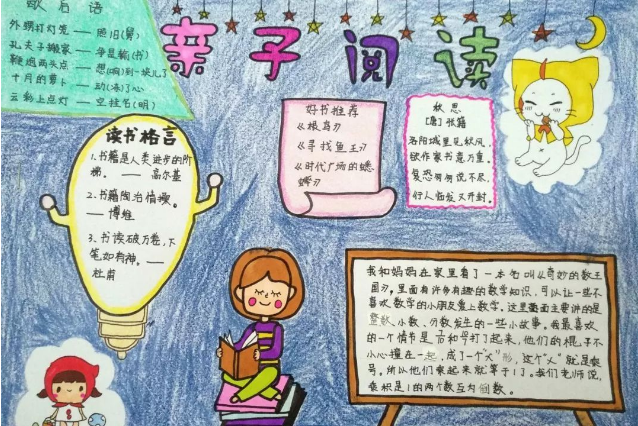 歇后语
外甥打灯笼——照旧(舅)
孔夫子搬家——净是输(书)
鞭炮两头点——想(响)到一块儿了
十月的萝卜——动(冻)了心
云彩上点灯——空挂名(明)
亲子阅读
读书格言
1.书籍是人类进步的阶
梯。——高尔基
2.书籍陶冶情操。
——博维
3.书读破万卷,下
笔如有神。——
杜甫
好书推荐
《根鸟》
《寻找鱼王》
《时代广场的蟋
蟀》
秋思
[唐]张籍
洛阳城里见秋风,
欲作家书意万重。
复恐匆匆说不尽,
行人临发又开封。
我和妈妈在家里看了一本名叫《奇妙的数王
国》,里面有许多有趣的数学知识,可以让一些不
喜欢数学的小朋友爱上数学。这里面主要讲的是
整数、小数、分数发生的一些小故事。我最喜欢
的一个情节是
打了起来,他们的棍子不
小心撞在一起,成了一个“×”形,这个“×”就是乘
号。所以他们乘起来就等于1了。我们老师说,
乘积是1的两个数互为倒数。